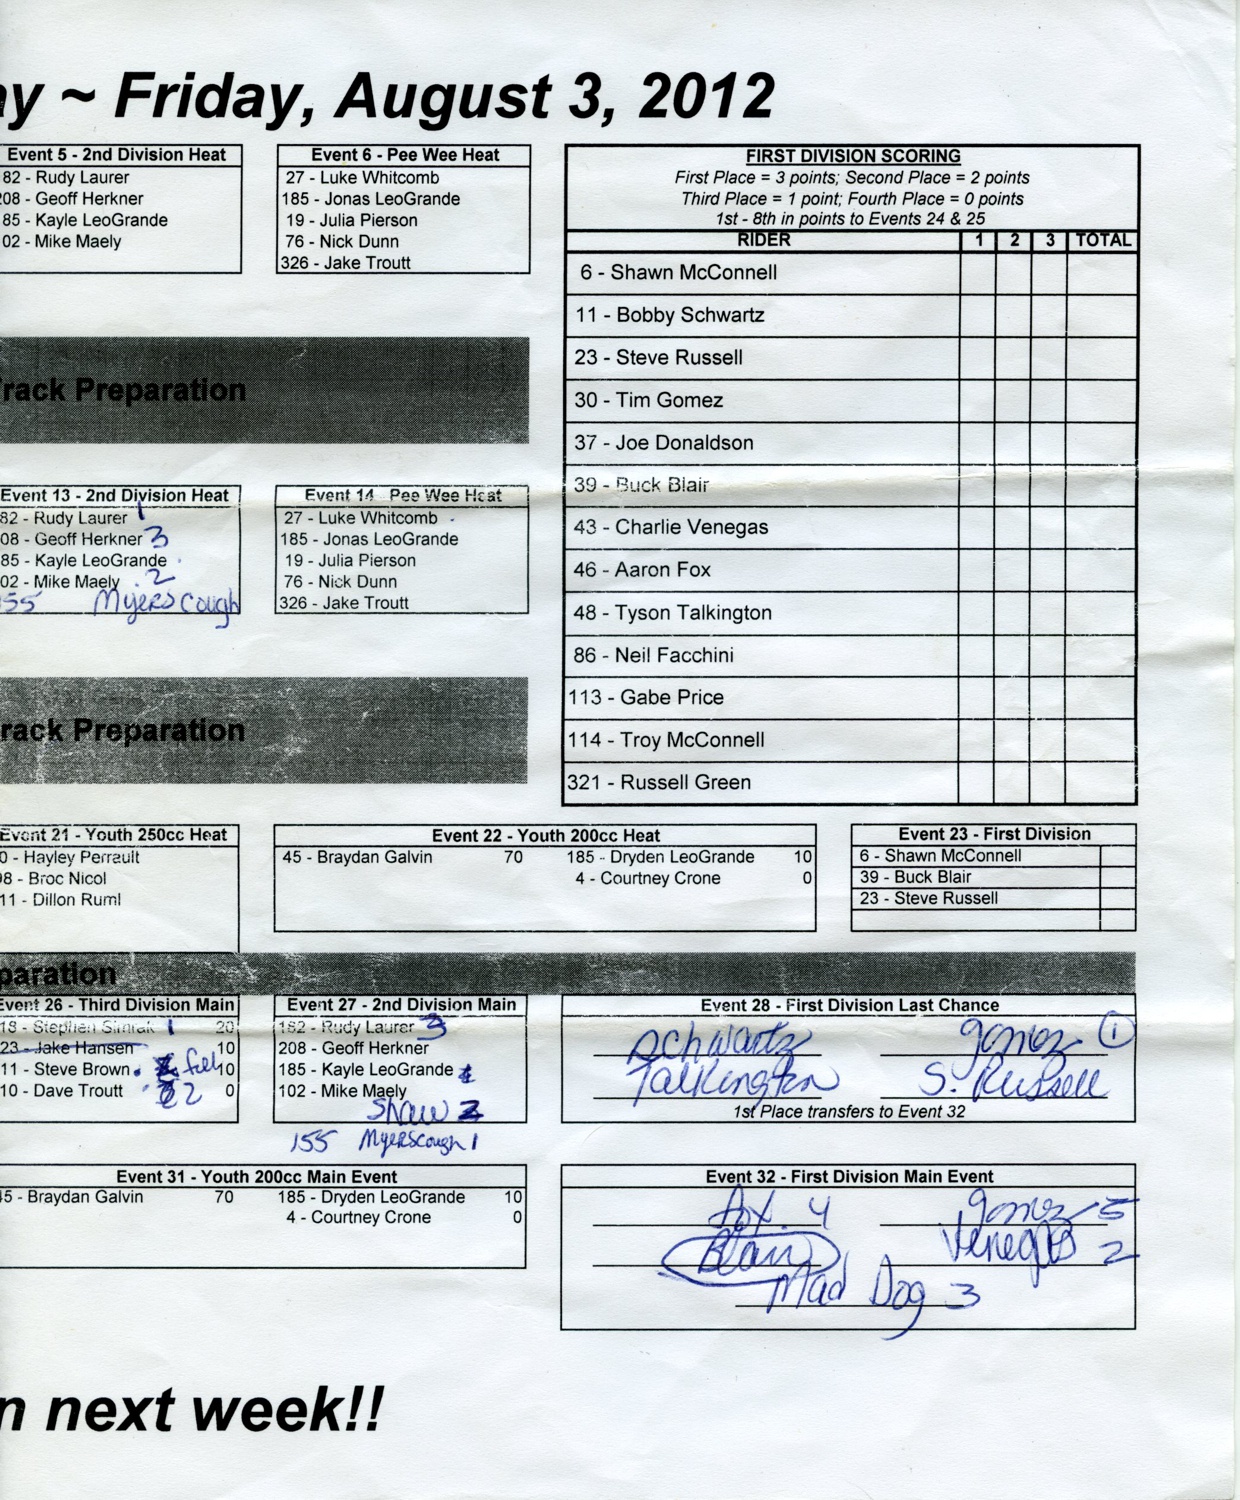 ay ~ Friday, August 3, 2012
Event 5 - 2nd Division Heat
82 - Rudy Laurer
208 - Geoff Herkner
85 - Kayle LeoGrande
02 - Mike Maely
Event 6 - Pee Wee Heat
27 - Luke Whitcomb
185 - Jonas LeoGrande
19 - Julia Pierson
76 - Nick Dunn
326 - Jake Troutt
FIRST DIVISION SCORING
First Place = 3 points; Second Place = 2 points
Third Place = 1 point; Fourth Place = 0 points
1st - 8th in points to Events 24 & 25
RIDER 1 2 3 TOTAL
6 - Shawn McConnell
11 - Bobby Schwartz
23 - Steve Russell
30 - Tim Gomez
37 - Joe Donaldson
39 - Buck Blair
43 - Charlie Venegas
46 - Aaron Fox
48 - Tyson Talkington
86 - Neil Facchini
113 - Gabe Price
114 - Troy McConnell
321 - Russell Green
Track Preparation
Event 13 - 2nd Division Heat
82 - Rudy Laurer 1
08 - Geoff Herkner 3
85 - Kayle LeoGrande
02 - Mike Maely 2
155 Myerscough
Event 14 - Pee Wee Heat
27 - Luke Whitcomb
185 - Jonas LeoGrande
19 - Julia Pierson
76 - Nick Dunn
326 - Jake Troutt
rack Preparation
Event 21 - Youth 250cc Heat
0 - Hayley Perrault
98 - Broc Nicol
11 - Dillon Ruml
Event 22 - Youth 200cc Heat
45 - Braydan Galvin 70 185 - Dryden LeoGrande 10
4 - Courtney Crone 0
Event 23 - First Division
6 - Shawn McConnell
39 - Buck Blair
23 - Steve Russell
paration
Event 26 - Third Division Main
18 - Stephen 1 20
23 - Jake Hansen 10
11 - Steve Brown fell 10
10 - Dave Troutt 2 0
Event 27 - 2nd Division Main
182 - Rudy Laurer 3
208 - Geoff Herkner
185 - Kayle LeoGrande
102 - Mike Maely
Shaw 2
155 Myerscough 1
Event 28 - First Division Last Chance
Schwartz Gomez 1
Talkington S. Russell
1st Place transfers to Event 32
Event 31 - Youth 200cc Main Event
45 - Braydan Galvin 70 185 - Dryden LeoGrande 10
4 - Courtney Crone 0
Event 32 - First Division Main Event
Fox. 4 Gomez 5
Blair Venegas 2
Mad Dog 3
n next week!!